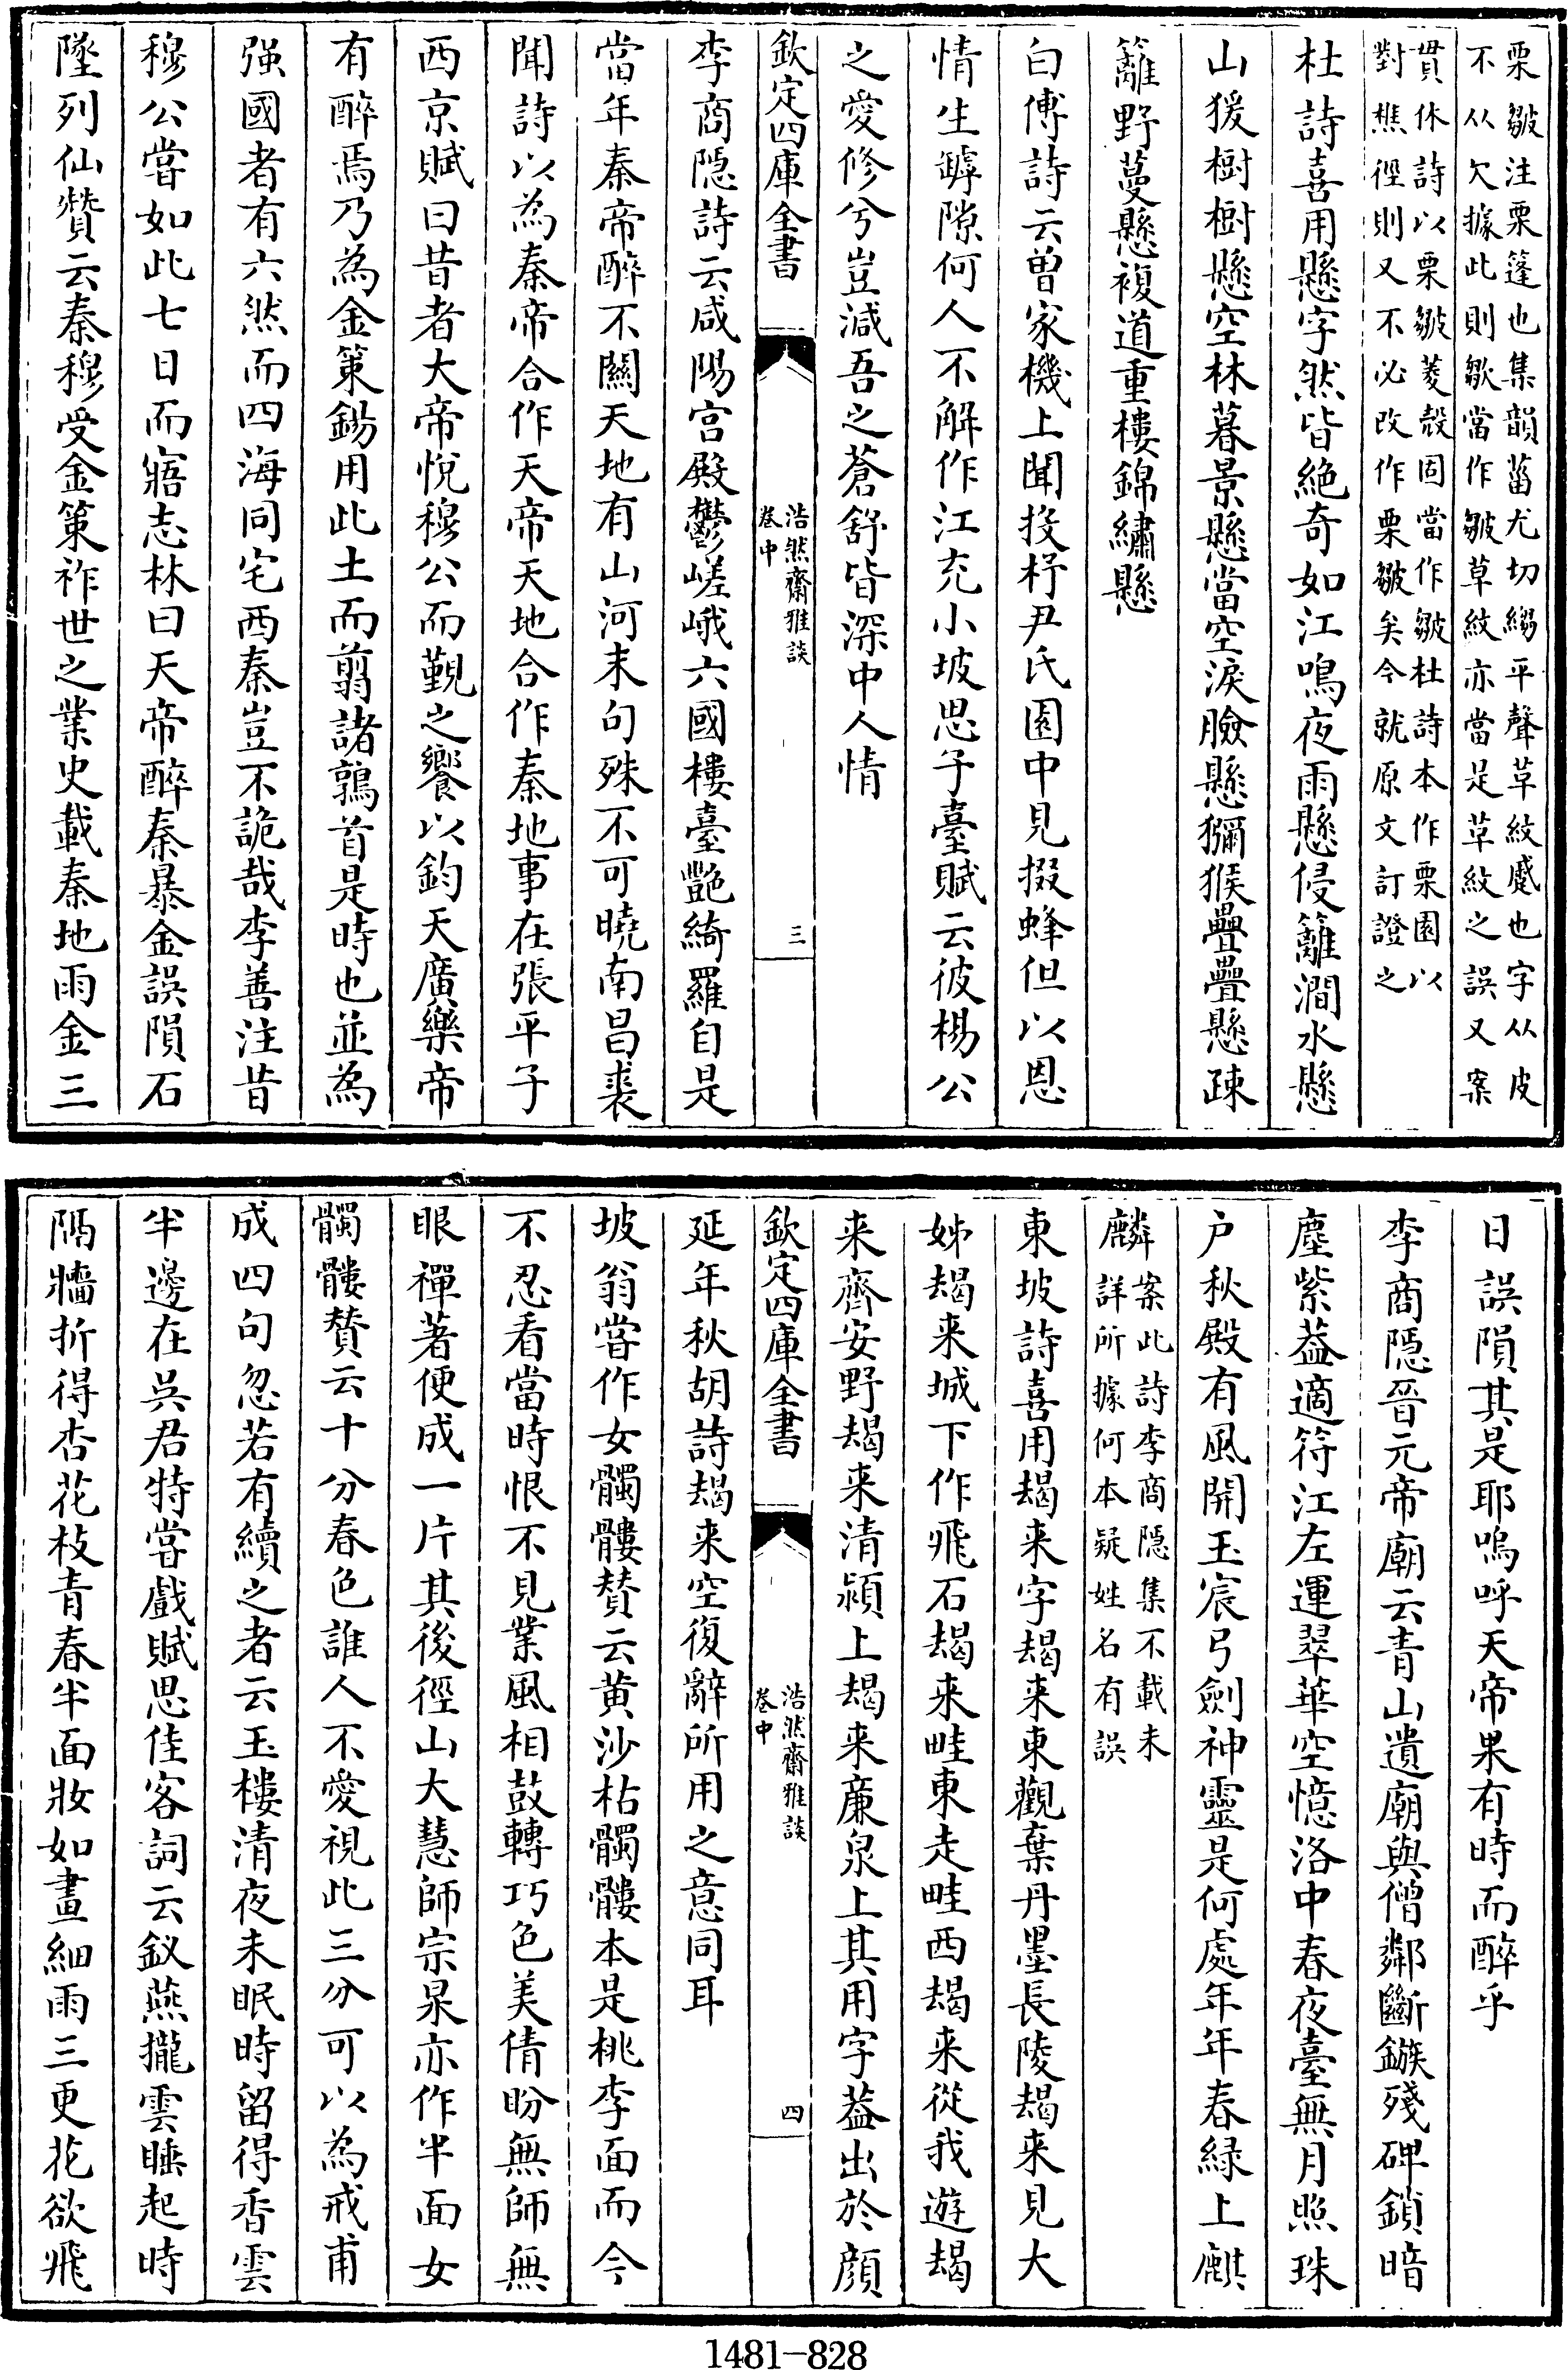 栗皺注栗篷也集韻葘尤切縐平聲草紋蹙也字从皮
不从欠據此則歐當作皺草紋亦當是草紋之誤又案
貫休詩以栗皺菱殼固當作皺杜詩本作栗園以
對樵徑則又不必改作栗皺矣今就原文訂證之
杜詩喜用懸字然皆絶奇如江鳴夜雨懸侵籬澗水懸
山猨樹樹懸空林暮景懸當空淚臉懸獼猴疊疊懸疎
籬野蔓懸複道重樓錦繡懸
白傅詩云曾家機上聞投杼尹氏園中見掇蜂但以恩
情生罅隙何人不解作江充小坡思子臺賦云彼楊公
之愛修兮豈減吾之蒼舒皆深中人情
欽定四庫全書
浩然齋雅談
卷中
三
李商隱詩云咸陽宮殿鬱嵯峨六國樓臺艷綺羅自是
當年秦帝醉不關天地有山河末句殊不可曉南昌裘
聞詩以為秦帝合作天帝天地合作秦地事在張平子
西京賦曰昔者大帝悅穆公而覲之饗以鈞天廣樂帝
有醉焉乃為金策錫用此土而翦諸鶉首是時也並為
强國者有六然而四海同宅西秦豈不詭哉李善注昔
穆公嘗如此七日而寤志林曰天帝醉秦暴金誤隕石
墜列仙贊云秦穆受金策祚世之業史載秦地雨金三
日誤隕其是耶嗚呼天帝果有時而醉乎
李商隱晉元帝廟云青山遺廟與僧鄰斷鏃殘碑鎖暗
塵紫葢適符江左運翠華空憶洛中春夜臺無月照珠
户秋殿有風開玉宸弓劍神靈是何處年年春緑上麒
麟案此詩李商隱集不載未
詳所據何本疑姓名有誤
東坡詩喜用朅来字朅来東觀棄丹墨長陵朅来見大
姊朅来城下作飛石朅来畦東走畦西朅来從我遊朅
来齊安野朅来清潁上朅来廉泉上其用字葢出於顔
欽定四庫全書
浩然齋雅談
卷中
四
延年秋胡詩朅来空復辭所用之意同耳
坡翁嘗作女髑髏贊云黄沙枯髑髏本是桃李面而今
不忍看當時恨不見業風相鼓轉巧色美倩盼無師無
眼禪著便成一片其後徑山大慧師宗杲亦作半面女
髑髏贊云十分春色誰人不愛視此三分可以為戒甫
成四句忽若有續之者云玉樓清夜未眠時留得香雲
半邊在吳君特嘗戲賦思佳客詞云釵燕攏雲睡起時
隔牆折得杏花枝青春半面妝如畫細雨三更花欲飛
1481-828